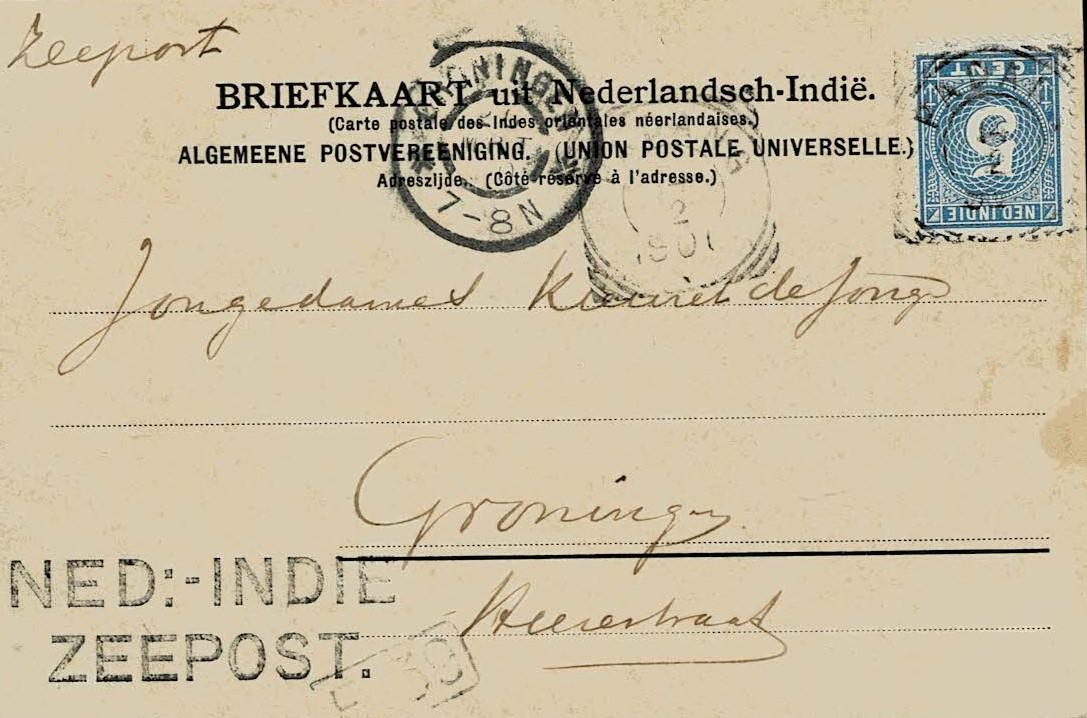 Zeepost
BRIEFKAART uit Nederlandsch-Indië.
(Carte postale des Indes orientales néerlandaises.)
ALGEMEENE POSTVEREENIGING. (UNION POSTALE UNIVERSELLE.)
Adreszijde. (Côté réservé à l'adresse.)
GRONINGEN
7-8N
2
1901
CENT
5
NED-INDIE
Jongedames de Jonge
Groningen
Heerestraat
NED:-INDIE
ZEEPOST.